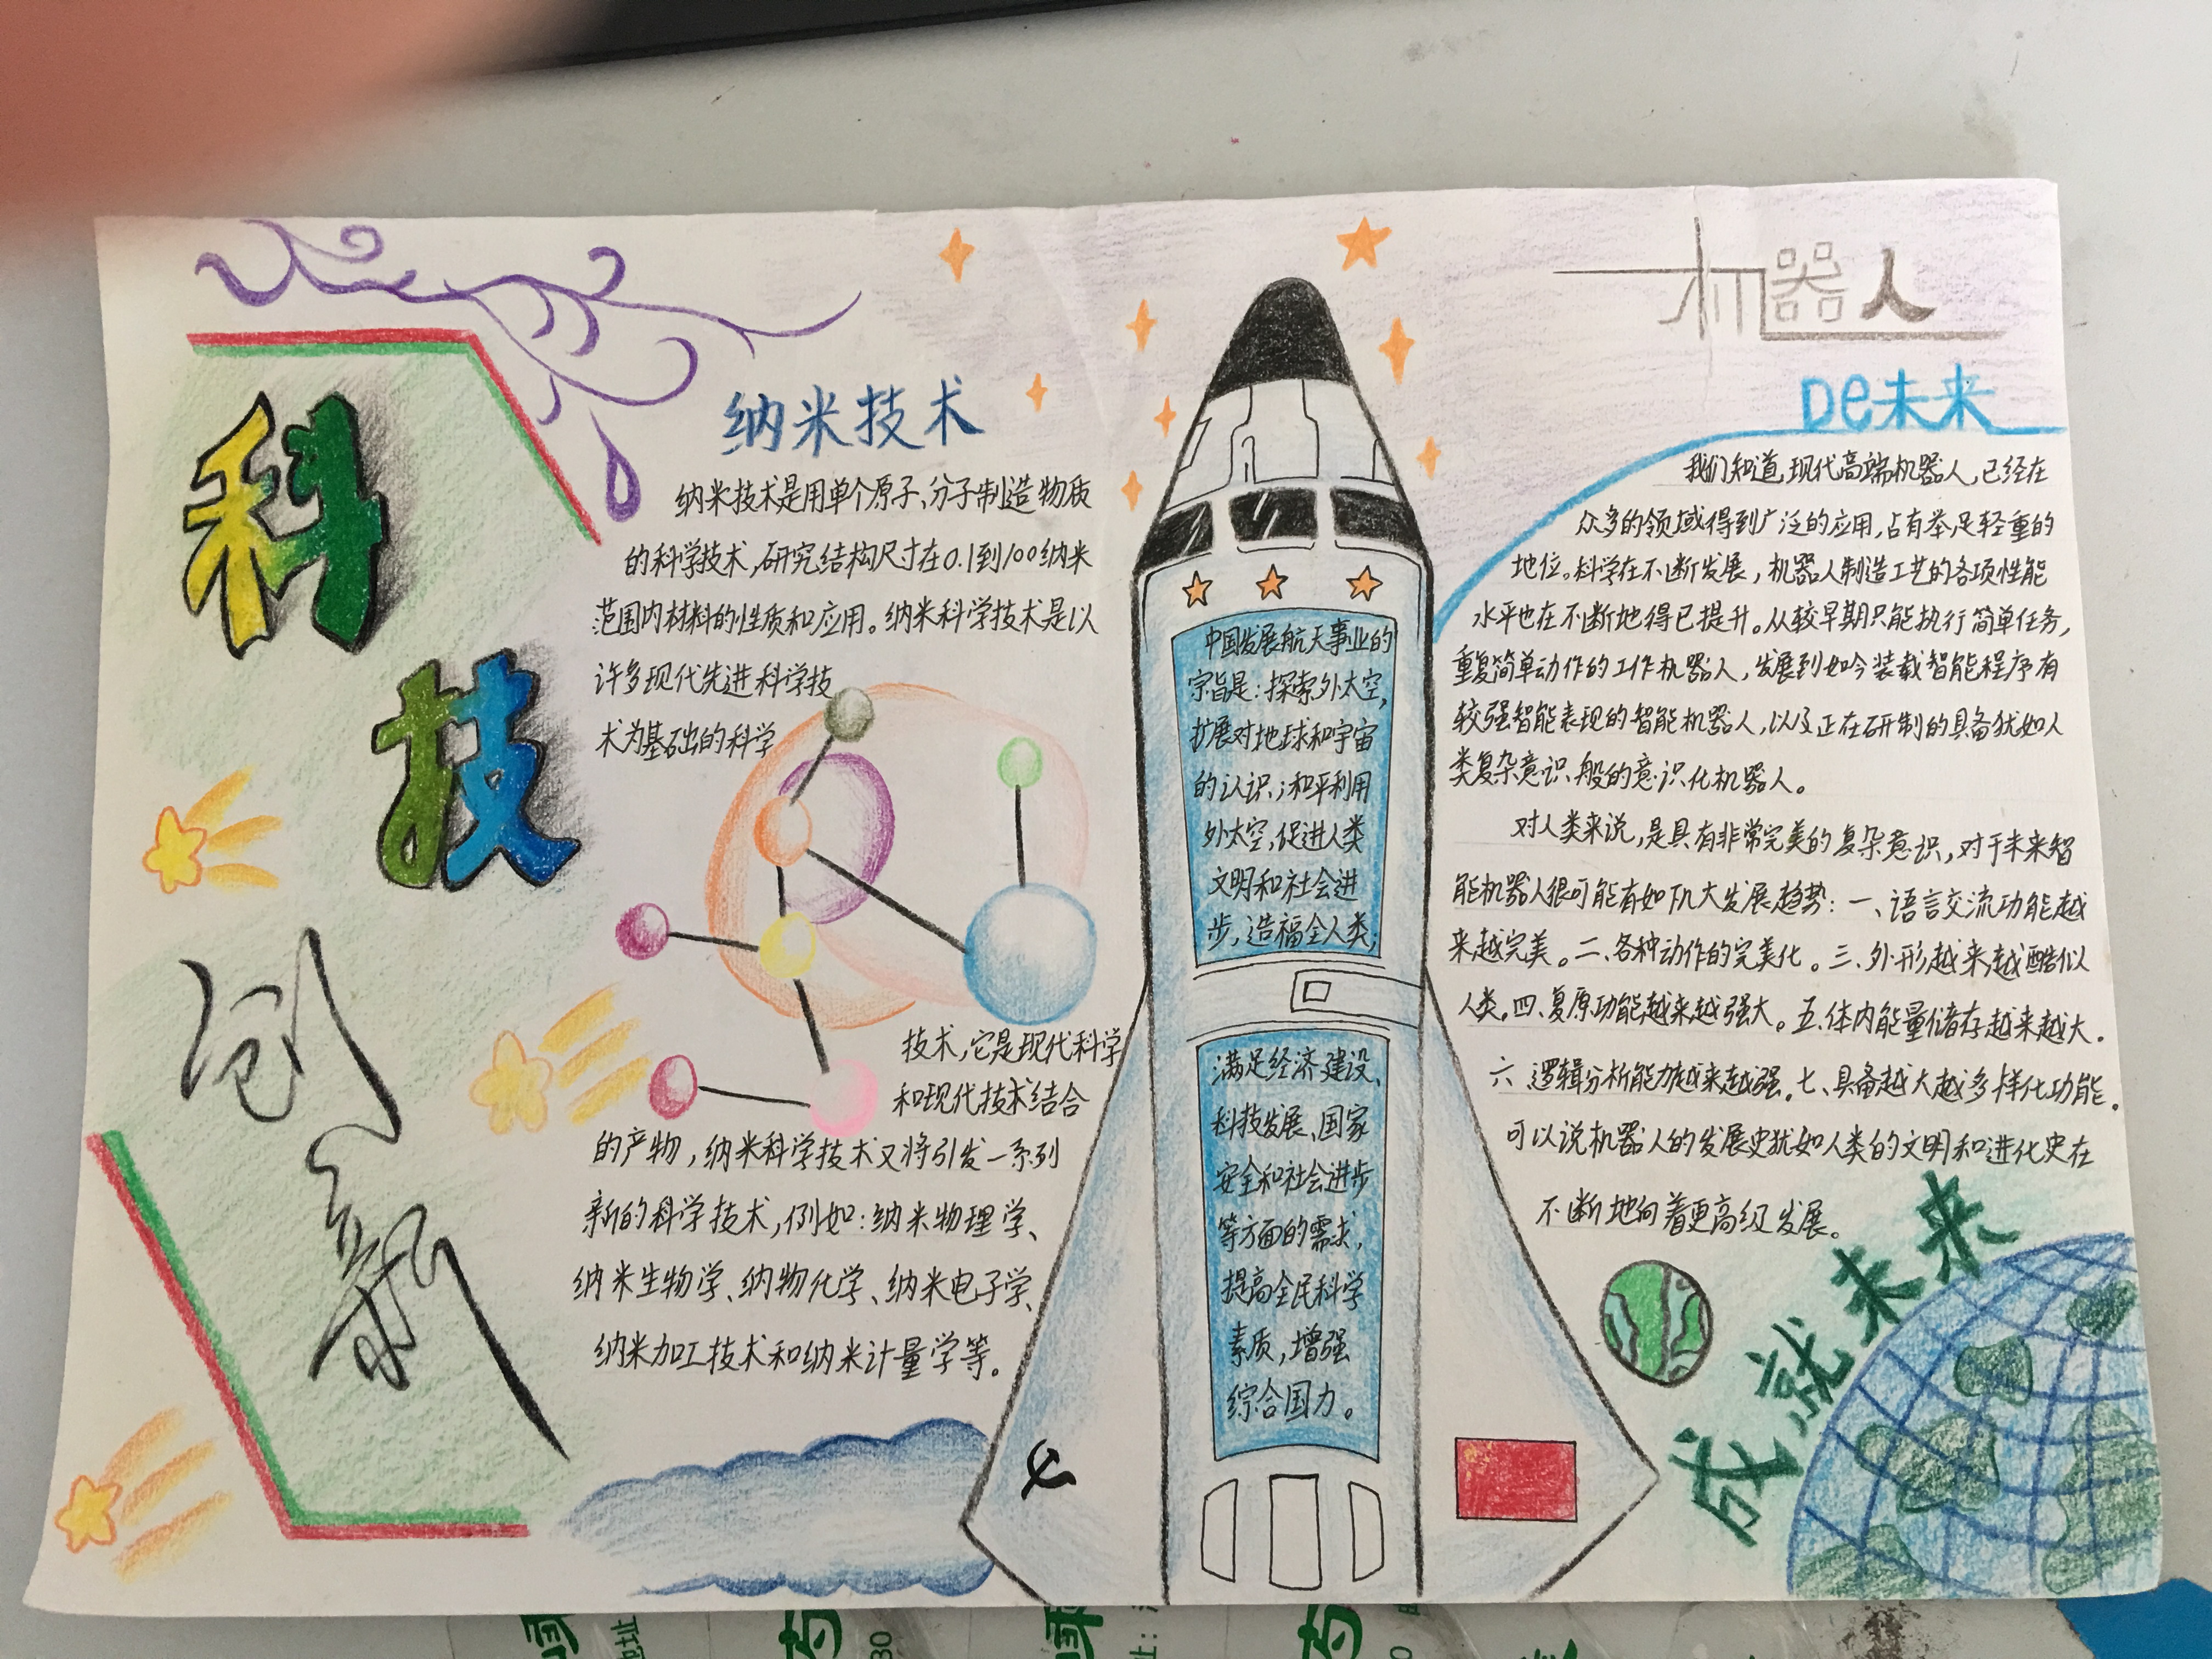 科
技
创
新
纳米技术
纳米技术是用单个原子、分子制造物质
的科学技术,研究结构尺寸在0.1到100纳米
范围内材料的性质和应用。纳米科学技术是以
许多现代先进科学技
术为基础的科学
技术,它是现代科学
和现代技术结合
的产物,纳米科学技术又将引发一系列
新的科学技术,例如:纳米物理学、
纳米生物学、纳物化学、纳米电子学、
纳米加工技术和纳米计量学等。
中国发展航天事业的
宗旨是:探索外太空,
扩展对地球和宇宙
的认识;和平利用
外太空,促进人类
文明和社会进
步,造福全人类;
满足经济建设、
科技发展、国家
安全和社会进步
等方面的需求,
提高全民科学
素质,增强
综合国力。
机器人
De未来
我们知道,现代高端机器人,已经在
众多的领域得到广泛的应用,占有举足轻重的
地位。科学在不断发展,机器人制造工艺的各项性能
水平也在不断地得已提升。从较早期只能执行简单任务,
重复简单动作的工作机器人,发展到如今装载智能程序有
较强智能表现的智能机器人,以及正在研制的具备犹如人
类复杂意识般的意识化机器人。
对人类来说,是具有非常完美的复杂意识,对于未来智
能机器人很可能有如下几大发展趋势:一、语言交流功能越
来越完美。二、各种动作的完美化。三、外形越来越酷似
人类。四、复原功能越来越强大。五、体内能量储存越来越大.
六、逻辑分析能力越来越强。七、具备越大越多样化功能.
可以说机器人的发展史犹如人类的文明和进化史在
不断地向着更高级发展。
成就未来
地址